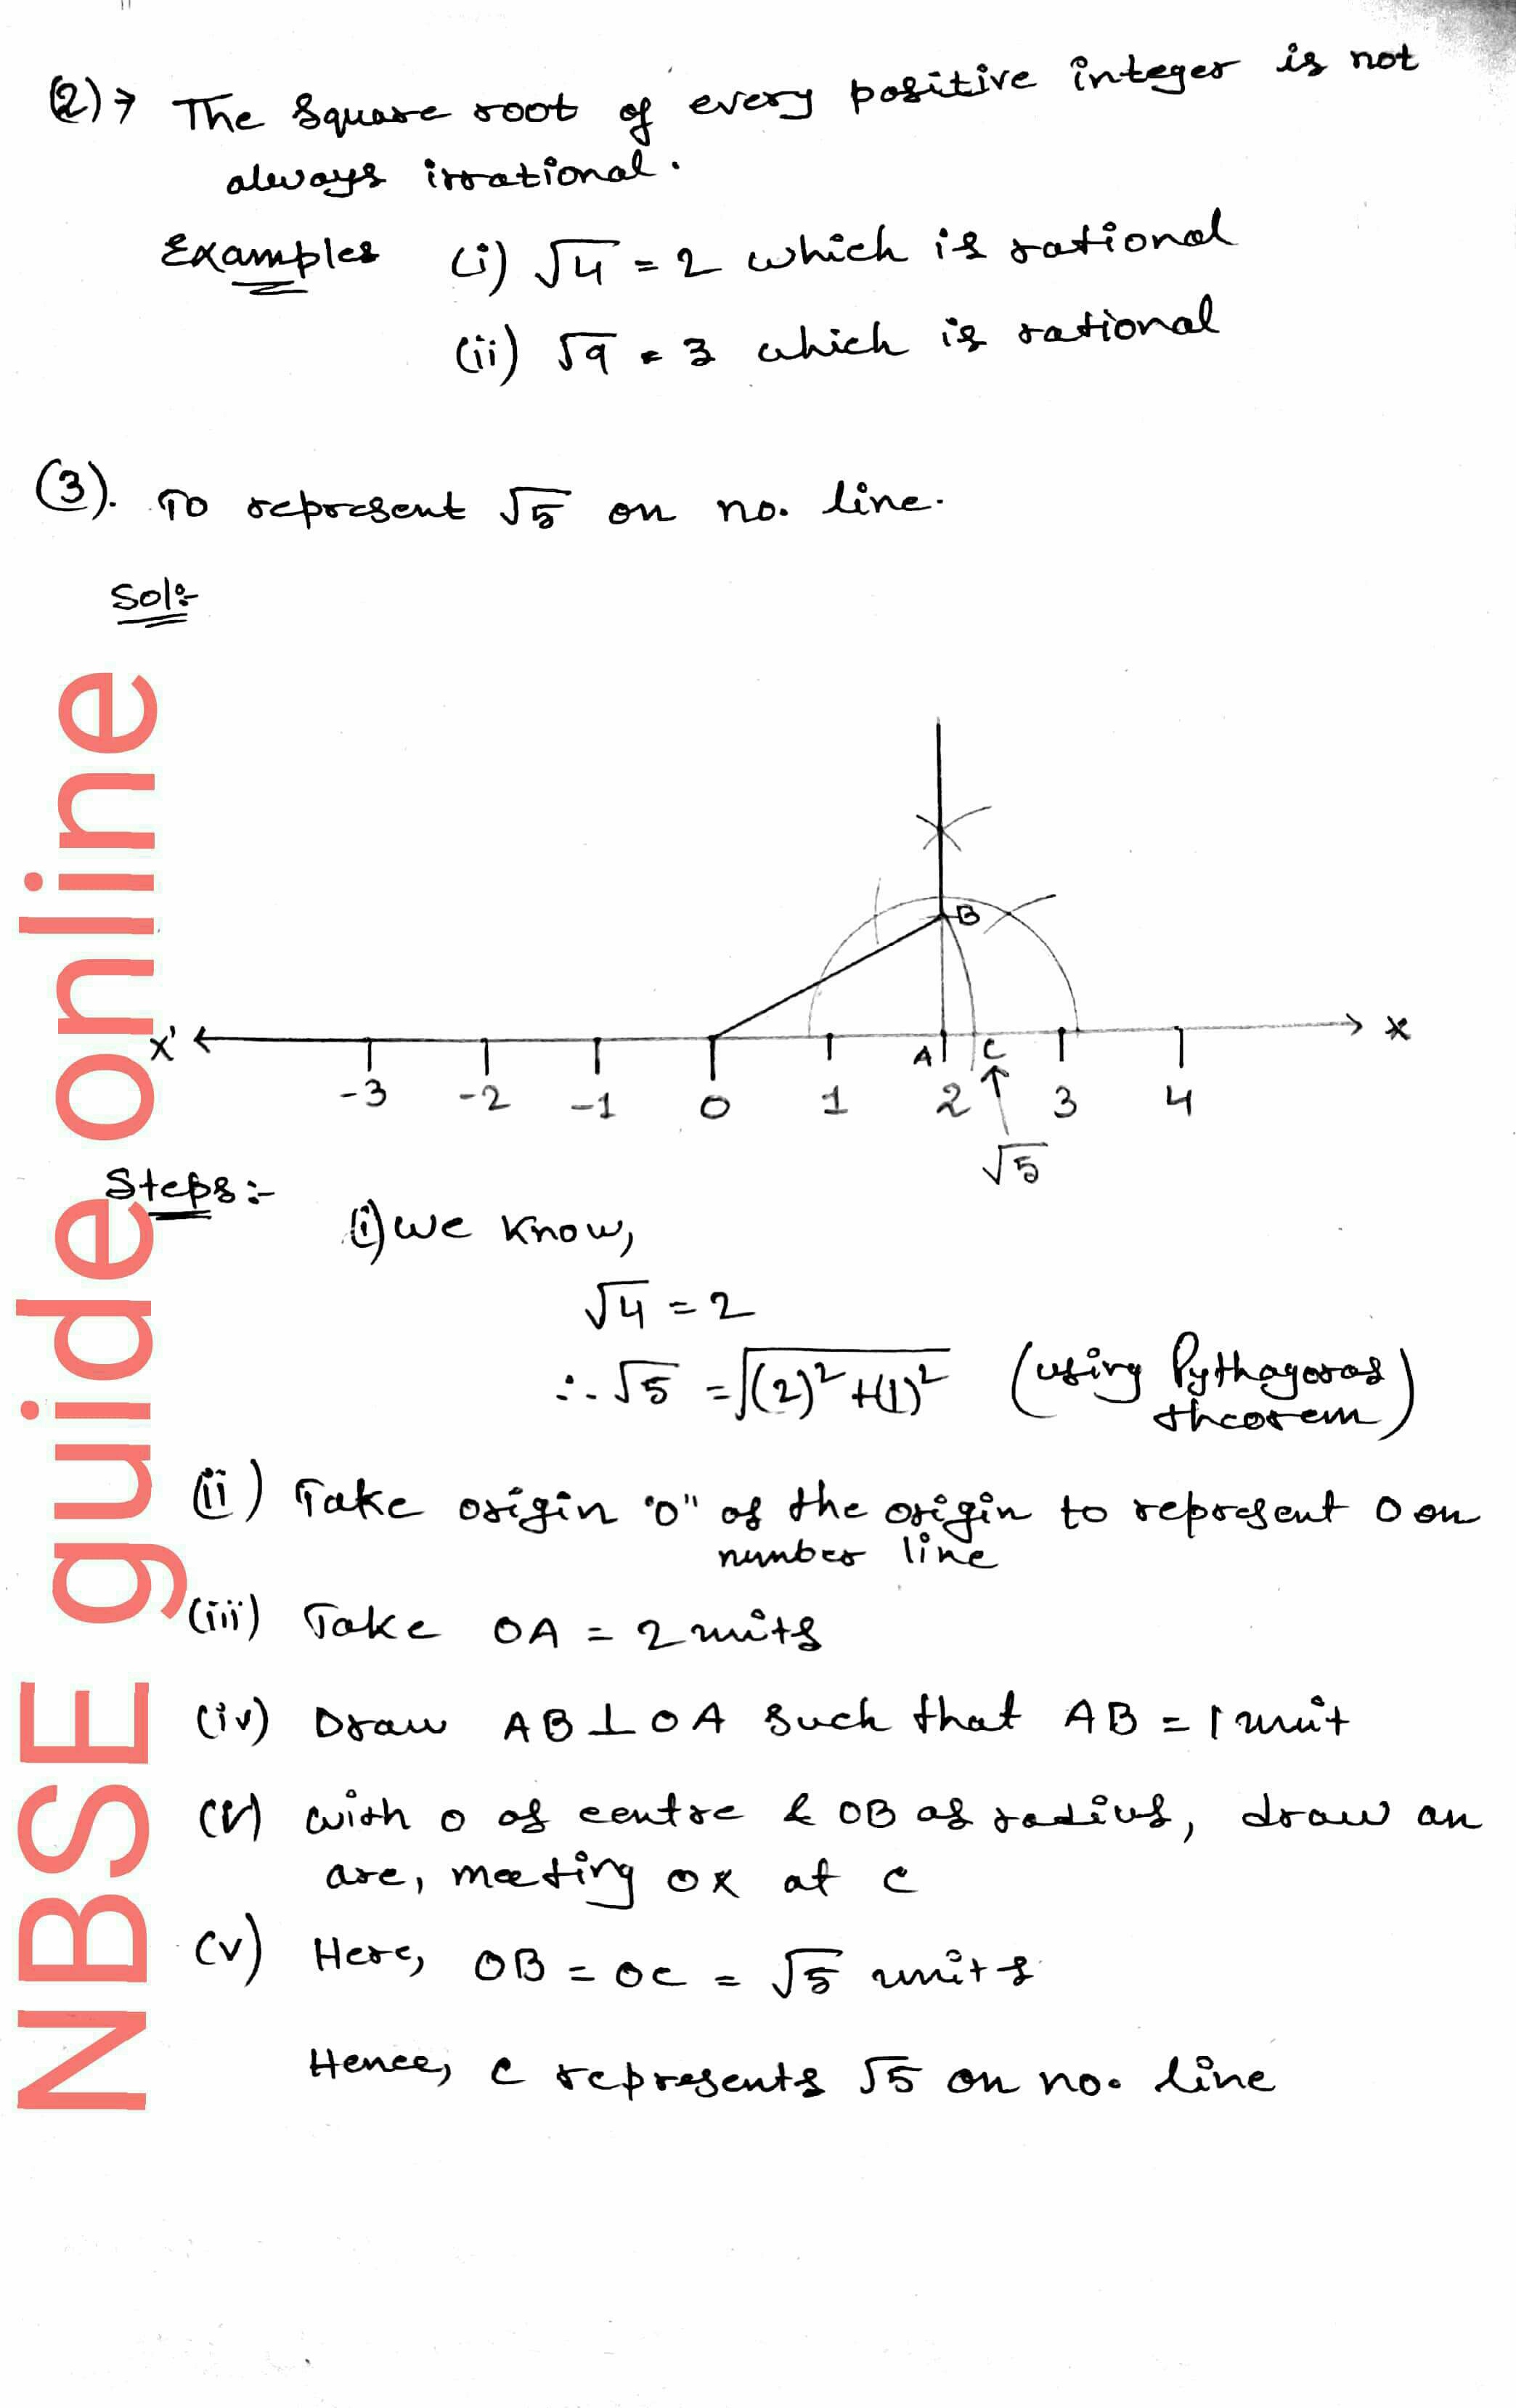 (2)→ The Square root of every positive integer is not
always irrational.
Examples (i) √4 = 2 which is rational
(ii) √9 = 3 which is rational
(3). To represent √5 on no. line.
Sol:-
B
X' A C X
-3 -2 -1 0 1 2 ↑ 3 4
√5
Steps:-
(i) we know,
√4 = 2
∴ √5 = √(2)²+(1)² (using Pythagoras
theorem)
(ii) Take origin "O" as the origin to represent 0 on
number line
(iii) Take OA = 2 units
(iv) Draw AB ⊥ OA such that AB = 1 unit
(v) with O as centre & OB as radius, draw an
arc, meeting OX at C
(v) Here, OB = OC = √5 units
Hence, C represents √5 on no. line
NBSE guide online